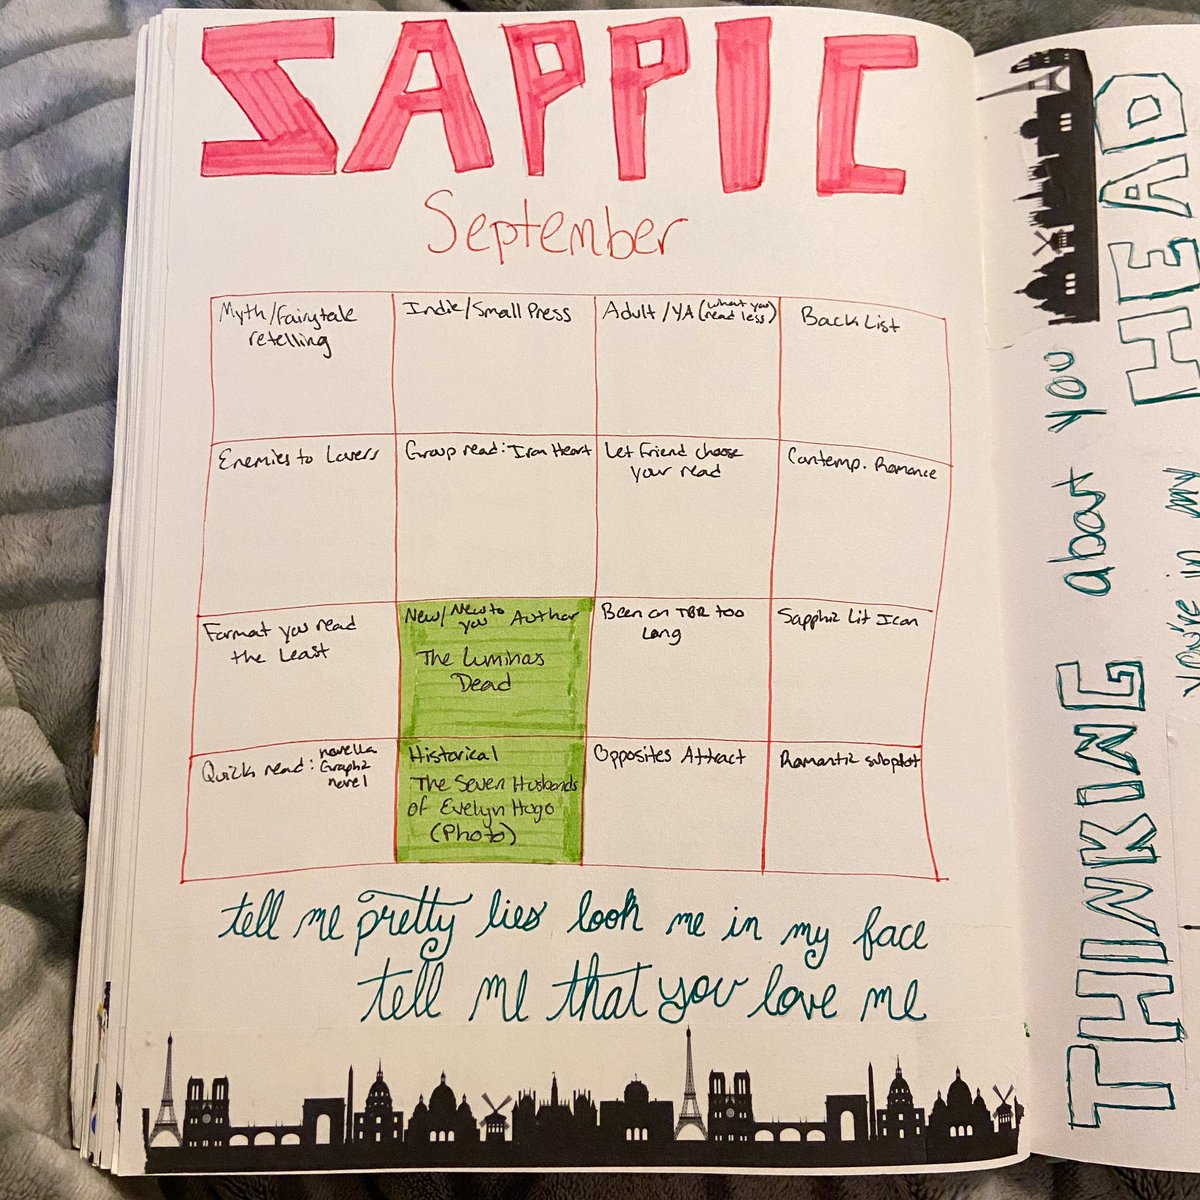 SAPPIC
September
Myth/Fairytale
retelling
Indie/Small Press
Adult/YA (what you
read less)
Back List
Enemies to Lovers
Group read: Iron Heart
Let Friend choose
your read
Contemp. Romance
Format you read
the Least
New/New to
you Author
The Luminous
Dead
Been on TBR too
Long
Sapphic Lit Icon
Quick read: novella
Graphic
novel
Historical
The Seven Husbands
of Evelyn Hugo
(Photo)
Opposites Attract
Romantic subplot
tell me pretty lies look me in my face
tell me that you love me
THINKING about you
you're in my
HEAD